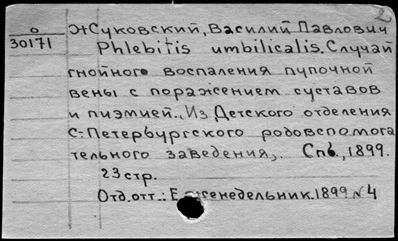 2
о
30171
Жуковский, Василий Павлович
Phlebitis umbilicalis. Случай
гнойного воспаления пупочной
вены с поражением суставов
и пиэмией., Из Детского отделения
С.-Петербургского родовспомога
тельного заведения,. Спб., 1899.
23 стр.
Отд. отт.: Еженедельник. 1899 № 4